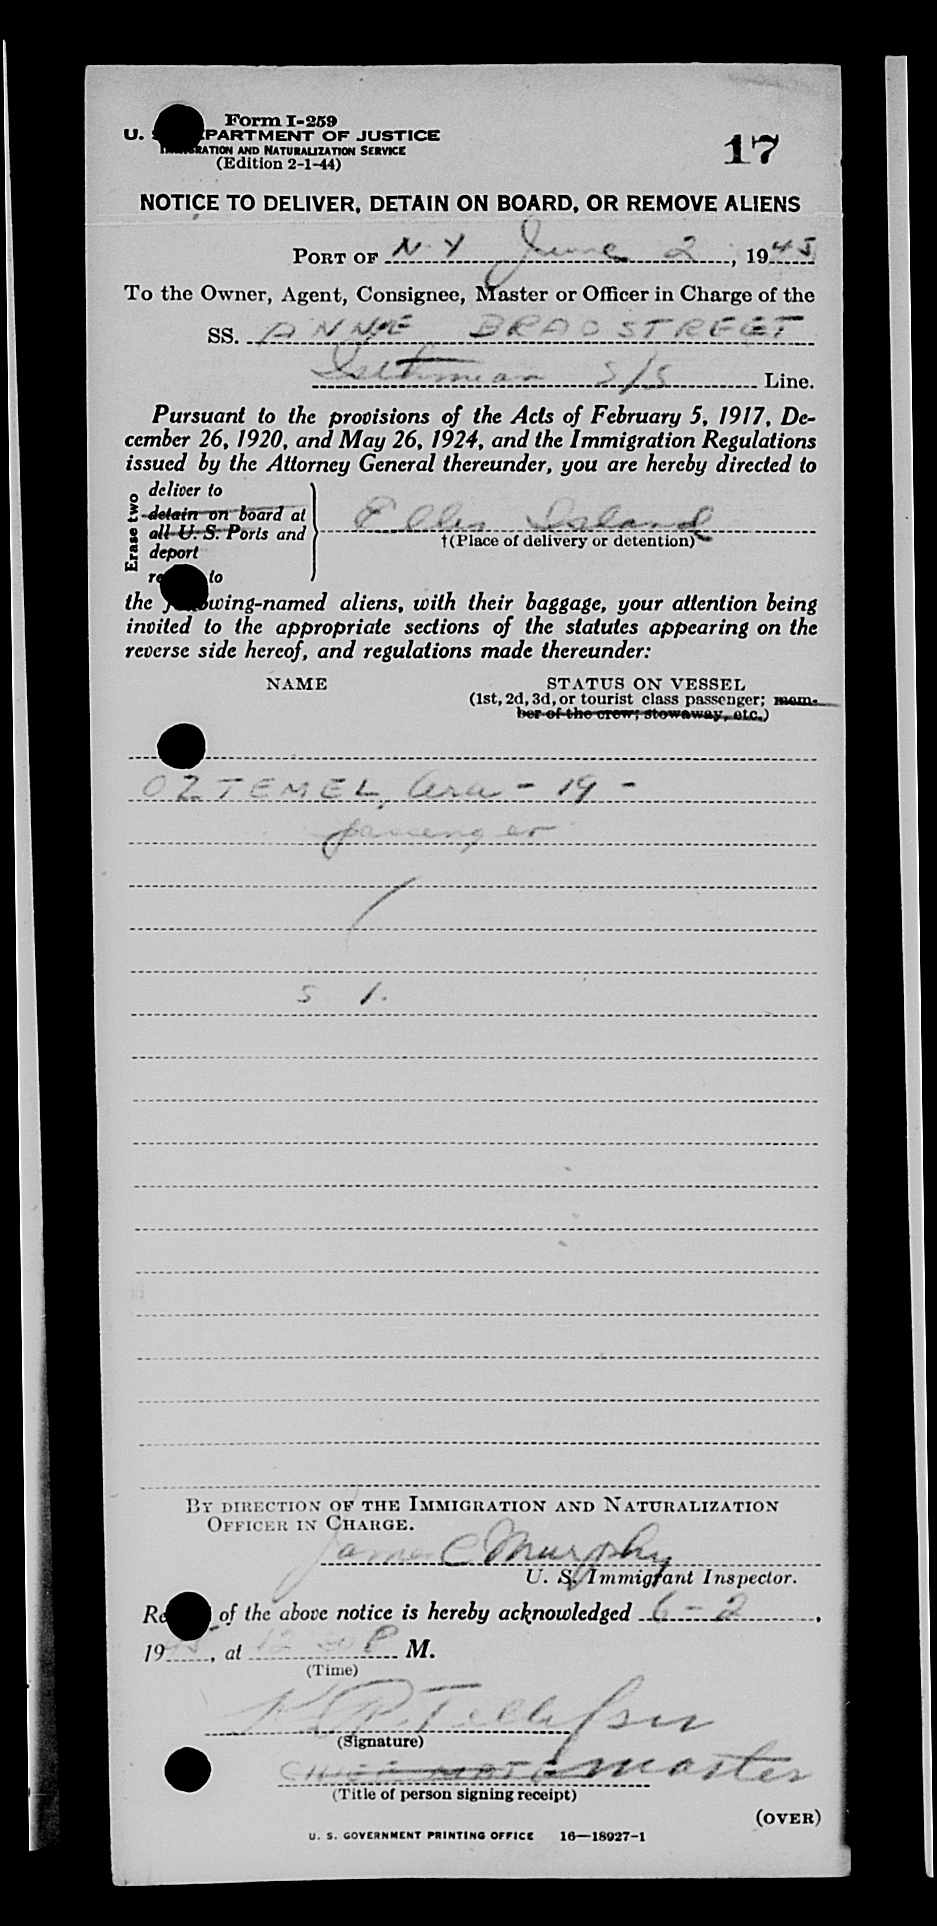 Form I-259
U. S. DEPARTMENT OF JUSTICE
IMMIGRATION AND NATURALIZATION SERVICE
(Edition 2-1-44)
17
NOTICE TO DELIVER, DETAIN ON BOARD, OR REMOVE ALIENS
PORT OF N.Y June 2, 1945
To the Owner, Agent, Consignee, Master or Officer in Charge of the
SS. ANNE BRADSTREET
Isthmian S/S Line.
Pursuant to the provisions of the Acts of February 5, 1917, De-
cember 26, 1920, and May 26, 1924, and the Immigration Regulations
issued by the Attorney General thereunder, you are hereby directed to
Erase two
deliver to
detain on board at
all U. S. Ports and
deport
remove to
Ellis Island
†(Place of delivery or detention)
the following-named aliens, with their baggage, your attention being
invited to the appropriate sections of the statutes appearing on the
reverse side hereof, and regulations made thereunder:
NAME STATUS ON VESSEL
(1st, 2d, 3d, or tourist class passenger; mem-
ber of the crew; stowaway, etc.)
OZTEMEL, Ara - 19 -
passenger
/
S 1.
BY DIRECTION OF THE IMMIGRATION AND NATURALIZATION
OFFICER IN CHARGE.
James C Murphy
U. S. Immigrant Inspector.
Receipt of the above notice is hereby acknowledged 6-2,
1945, at 12 30 P M.
(Time)
(Signature)
CHIEF MATE master
(Title of person signing receipt)
(OVER)
U. S. GOVERNMENT PRINTING OFFICE 16—18927-1